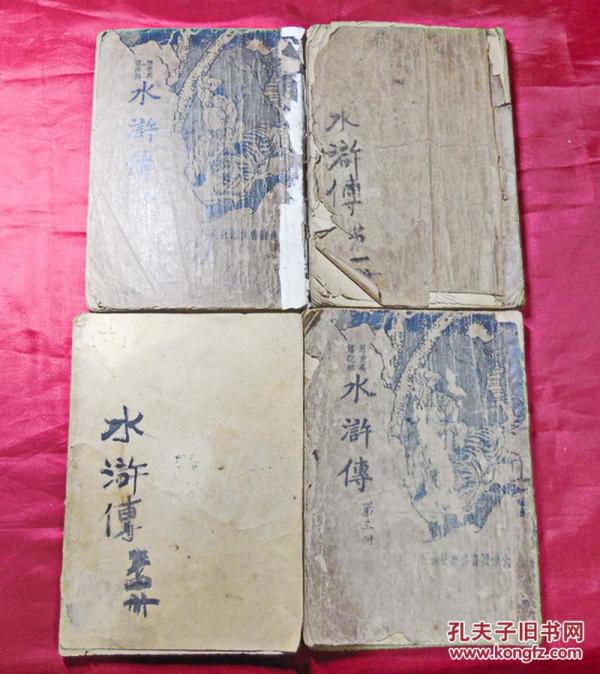 水滸傳
水滸傳
第一册
水滸傳
第四册
水滸傳
第三册
孔夫子旧书网
www.kongfz.com